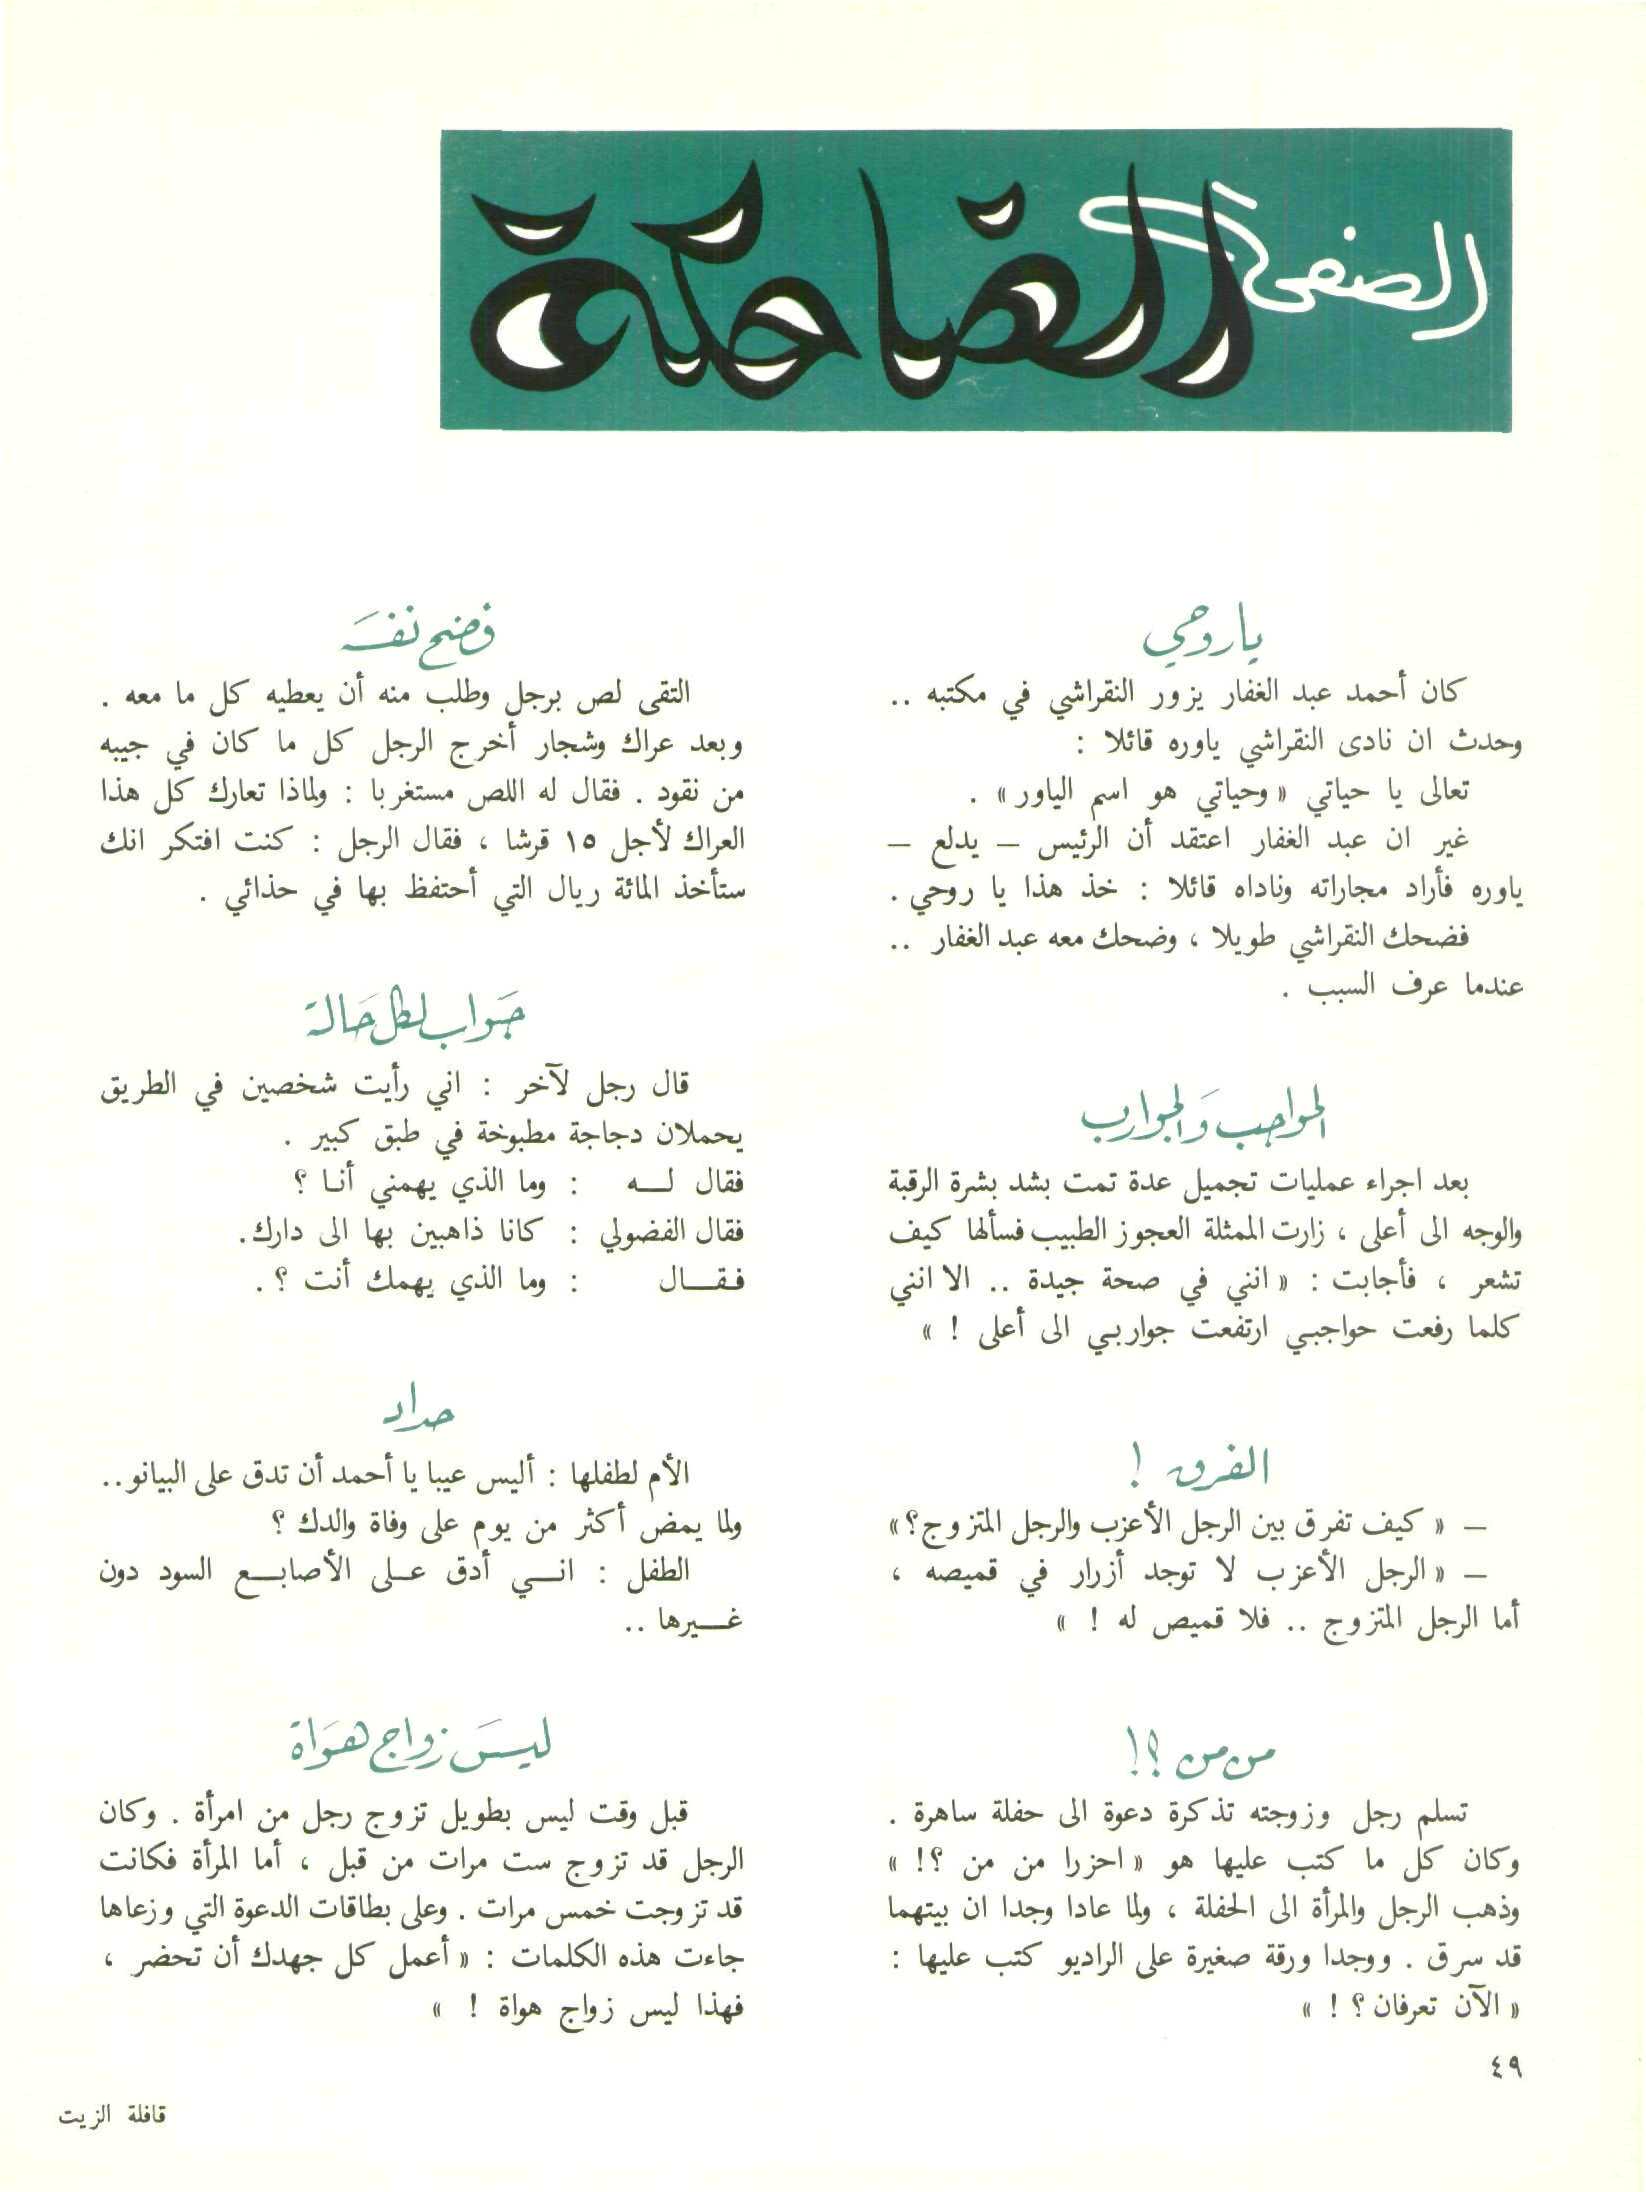 الصفحة الضاحكة
يا روحي
كان أحمد عبد الغفار يزور النقراشي في مكتبه ..
وحدث ان نادى النقراشي ياوره قائلا :
تعالى يا حياتي « وحياتي هو اسم الياور » .
غير ان عبد الغفار اعتقد أن الرئيس – يدلع –
ياوره فأراد مجاراته وناداه قائلا : خذ هذا يا روحي .
فضحك النقراشي طويلا ، وضحك معه عبد الغفار ..
عندما عرف السبب .
الحواجب والجوارب
بعد اجراء عمليات تجميل عدة تمت بشد بشرة الرقبة
والوجه الى أعلى ، زارت الممثلة العجوز الطبيب فسألها كيف
تشعر ، فأجابت : « انني في صحة جيدة .. الا انني
كلما رفعت حواجبي ارتفعت جواربي الى أعلى ! »
الفرق !
– « كيف تفرق بين الرجل الأعزب والرجل المتزوج؟»
– « الرجل الأعزب لا توجد أزرار في قميصه ،
أما الرجل المتزوج .. فلا قميص له ! »
من من ؟!
تسلم رجل وزوجته تذكرة دعوة الى حفلة ساهرة .
وكان كل ما كتب عليها هو « احزرا من من ؟! »
وذهب الرجل والمرأة الى الحفلة ، ولما عادا وجدا ان بيتهما
قد سرق . ووجدا ورقة صغيرة على الراديو كتب عليها :
« الآن تعرفان ؟ ! »
فضح نفسه
التقى لص برجل وطلب منه أن يعطيه كل ما معه .
وبعد عراك وشجار أخرج الرجل كل ما كان في جيبه
من نقود . فقال له اللص مستغربا : ولماذا تعارك كل هذا
العراك لأجل ١٥ قرشا ، فقال الرجل : كنت افتكر انك
ستأخذ المائة ريال التي أحتفظ بها في حذائي .
جواب لكل حالة
قال رجل لآخر : اني رأيت شخصين في الطريق
يحملان دجاجة مطبوخة في طبق كبير .
فقال لـه : وما الذي يهمني أنا ؟
فقال الفضولي : كانا ذاهبين بها الى دارك.
فـقـال : وما الذي يهمك أنت ؟ .
حداد
الأم لطفلها : أليس عيبا يا أحمد أن تدق على البيانو..
ولما يمض أكثر من يوم على وفاة والدك ؟
الطفل : انـي أدق عـلى الأصابـع السود دون
غـيرها ..
ليس زواج هواة
قبل وقت ليس بطويل تزوج رجل من امرأة . وكان
الرجل قد تزوج ست مرات من قبل ، أما المرأة فكانت
قد تزوجت خمس مرات . وعلى بطاقات الدعوة التي وزعاها
جاءت هذه الكلمات : « أعمل كل جهدك أن تحضر ،
فهذا ليس زواج هواة ! »
٤٩
قافلة الزيت